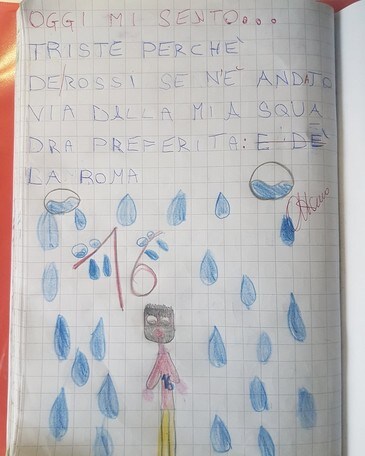 OGGI MI SENTO...
TRISTE PERCHE'
DE/ROSSI SE N'È ANDATO
VIA DALLA MIA SQUA
DRA PREFERITA: E DE'
LA ROMA
16
16